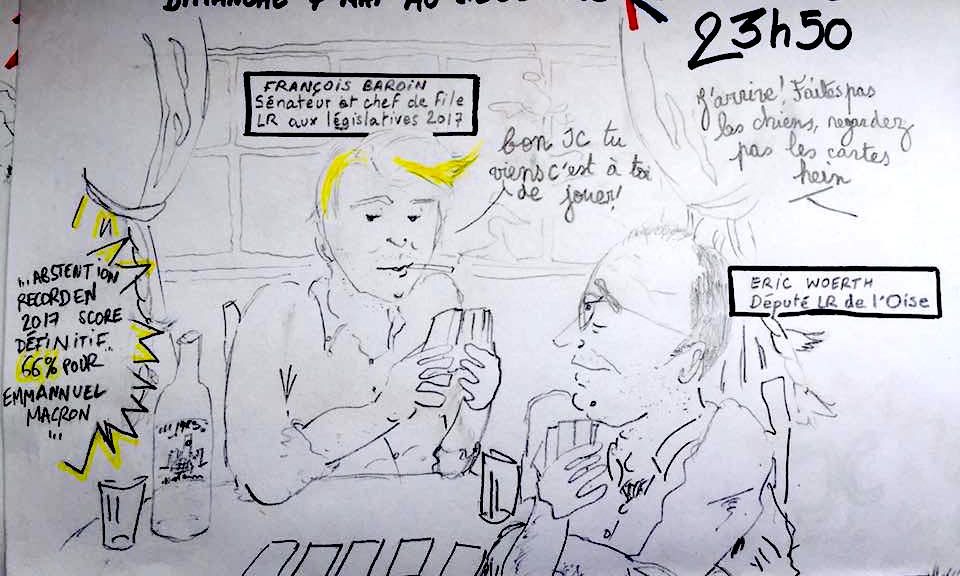 DIMANCHE 7 MAI AU
23h50
FRANÇOIS BAROIN
Sénateur et chef de File
LR aux législatives 2017
bon JC tu
viens c'est à toi
de jouer!
J'arrive! Faites pas
les chiens, regardez
pas les cartes
hein
ERIC WOERTH
Député LR de l'Oise
... ABSTENTION
RECORD EN
2017 SCORE
DÉFINITIF..
66% POUR
EMMANNUEL
MACRON
...